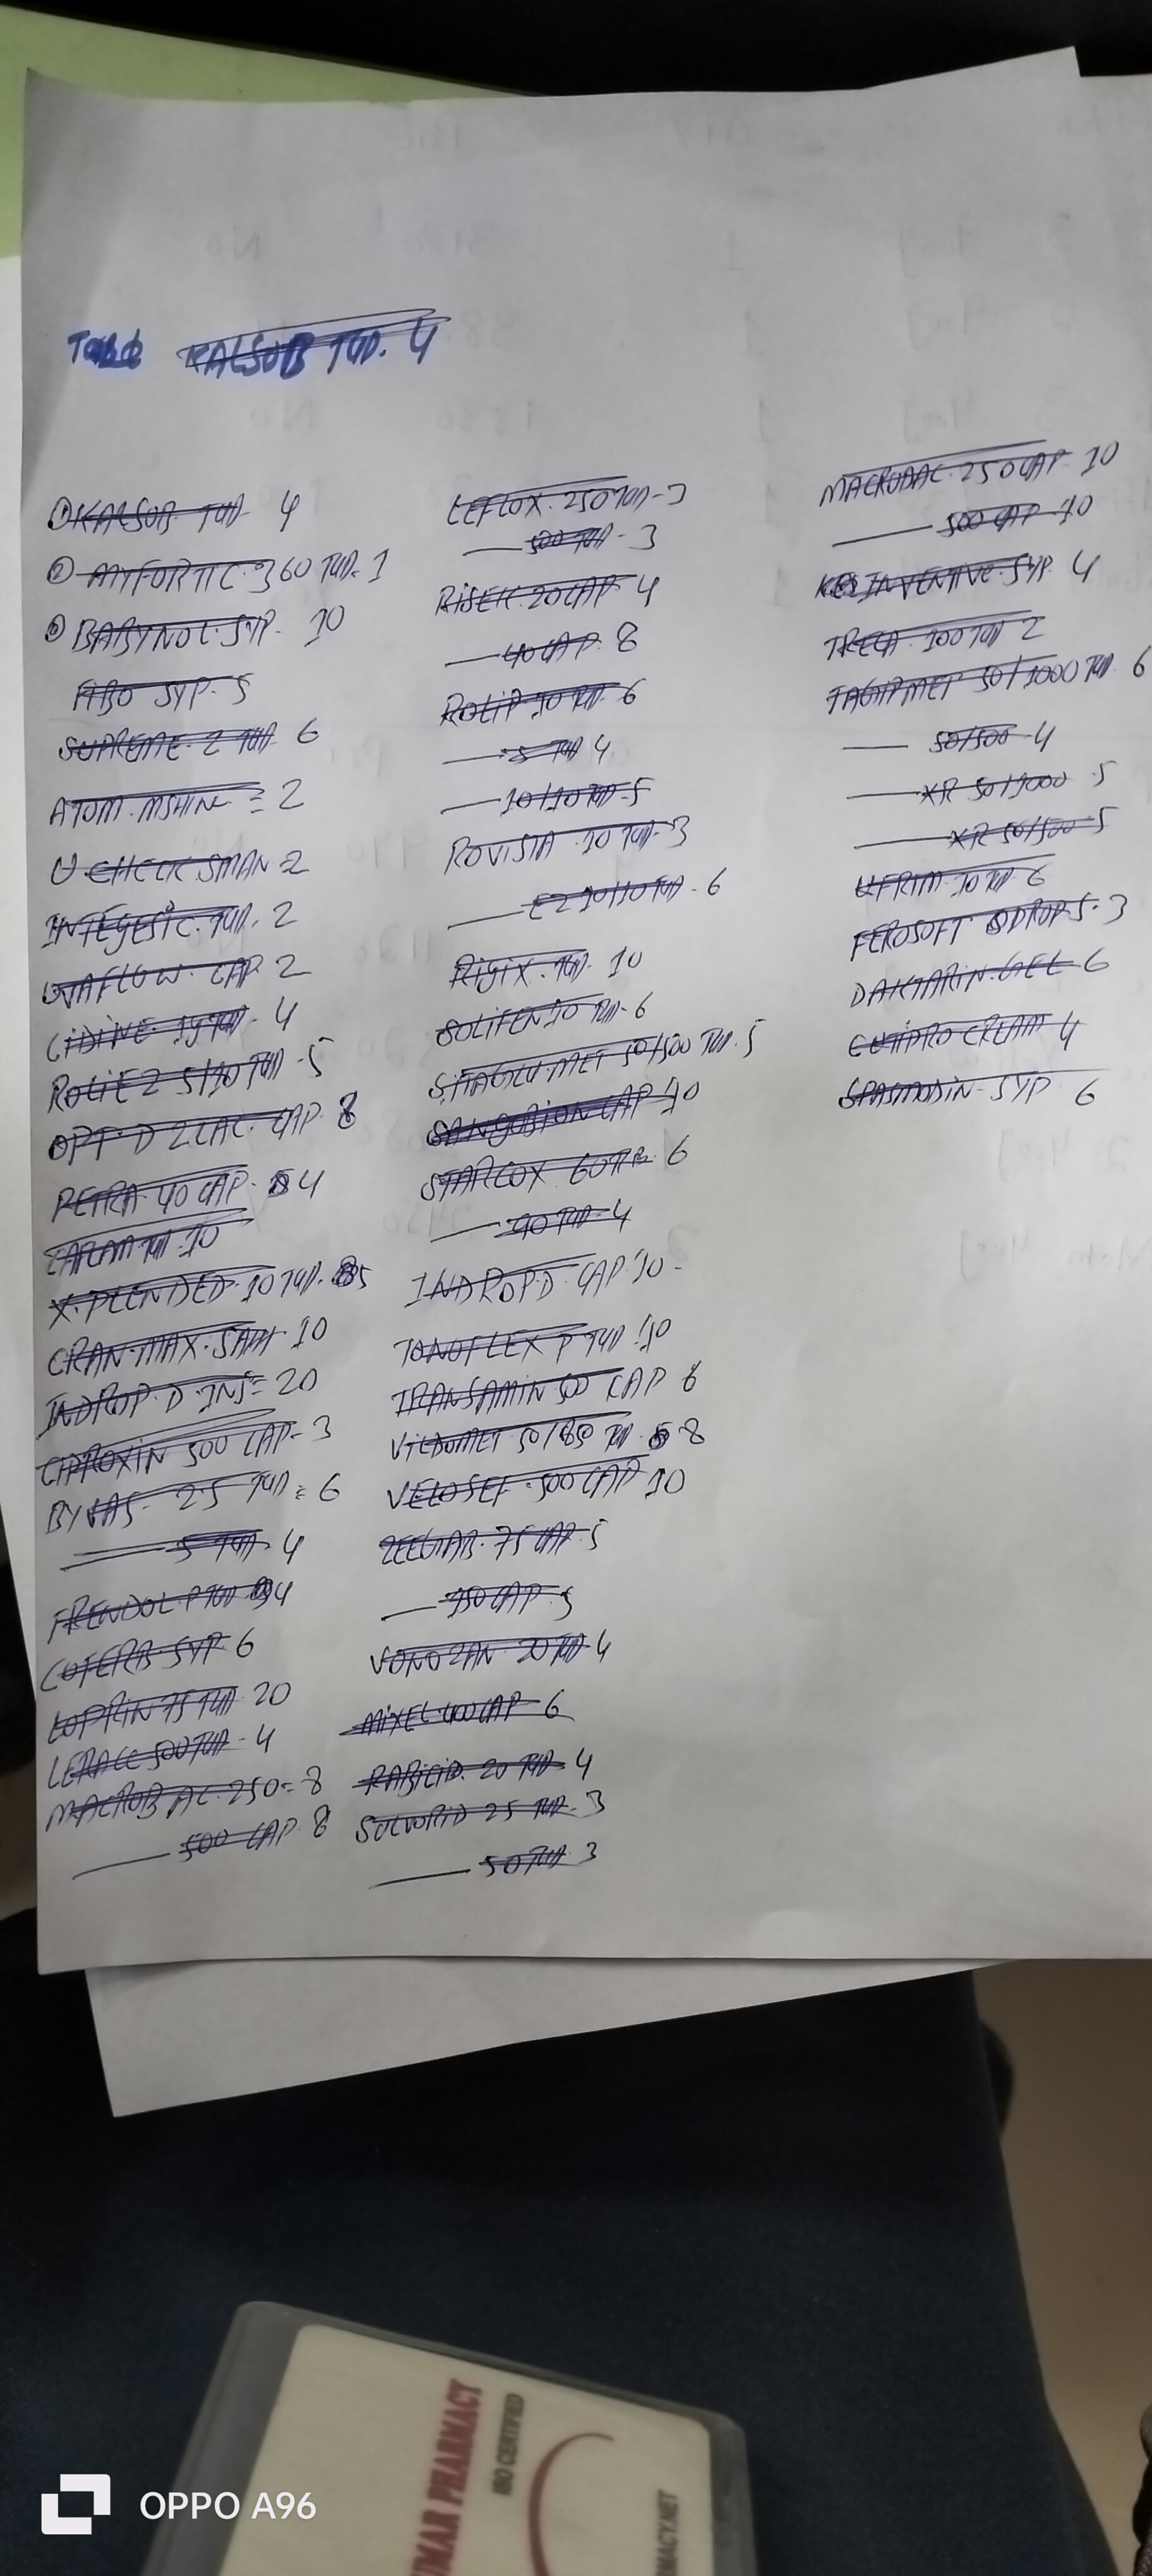 KALSOB TAB. 4
① KALSOB TAB 4
② MYFORTIC. 360 TAB. 1
③ BABYNOL. SYP. 10
FIBO SYP. 5
SUPREME. 2 TAB 6
ATOM. MSHINE = 2
U CHECK SMAN = 2
INTEGESIC. TAB. 2
UAFLOW. CAP 2
CIDINE. 1g TAB. 4
ROLIEZ 5/10 TAB - 5
OPT. D 2LAC. CAP. 8
PETRA 40 CAP. 4
TAB 10
X. PLENDED. 10 TAB. 5
CRAN-MAX. SAH. 10
INDROP. D INJ = 20
CIPROXIN 500 CAP = 3
BYVAS - 2.5 TAB = 6
5 TAB 4
FRENDOL. P TAB 4
COFERB SYP 6
LOPRIN 75 TAB 20
LERACE 500 TAB - 4
MACROBAC. 250 = 8
500 CAP. 8
LEFLOX. 250 TAB - 3
500 TAB - 3
RISEK. 20 CAP 4
40 CAP. 8
ROLIP 10 TAB 6
5 TAB 4
10/10 TAB 5
ROVISTA 10 TAB - 3
EZ 10/10 TAB - 6
RIGIX. TAB. 10
SOLIFEN 10 TAB - 6
SITAGLU MET 50/500 TAB. 5
SANGOBION CAP 10
STARCOX 60 TAB 6
90 TAB 4
INDROP. D. CAP. 10 -
TONOFLEX P TAB 10
TRANSAMIN 500 CAP 6
VILDOMET 50/850 TAB. 8
VELOSEF. 500 CAP 10
ZEEGAB. 75 CAP. 5
150 CAP 5
VONOZAN 20 TAB 4
MIXEL 400 CAP 6
RABICID. 20 TAB 4
SULVORID 25 TAB - 3
50 TAB 3
MACROBAC. 250 CAP. 10
500 CAP 10
INVENTIVE. SYP. 4
TRECA. 100 TAB 2
TAGIPMET 50/1000 TAB. 6
50/500 - 4
XR 50/1000 . 5
XR 50/500 - 5
UFRIM. 10 TAB 6
FEROSOFT DROPS. 3
DAKTARIN. GEL 6
CUTIPRO CREAM 4
SPASMODIN SYP 6
UMAR PHARMACY
ISO CERTIFIED
RMACY.NET
OPPO A96